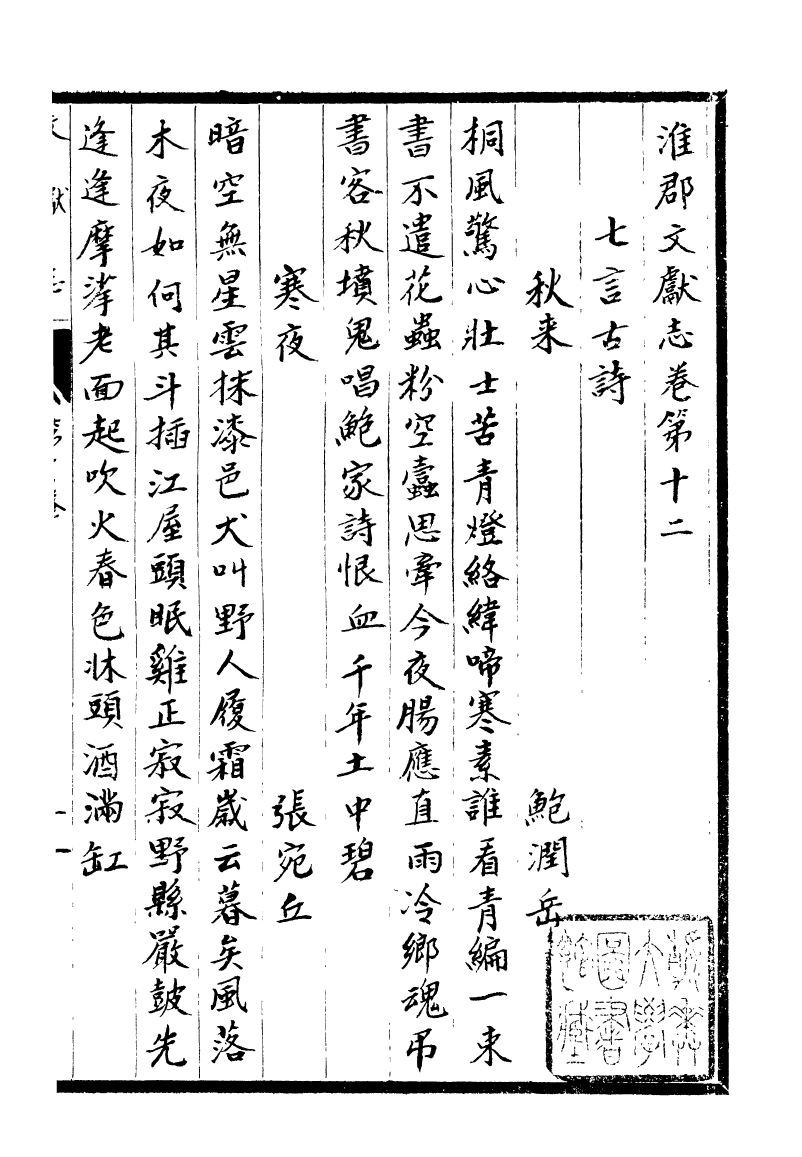 淮郡文獻志卷第十二
七言古詩
秋来 鮑潤岳
桐風驚心壯士苦青燈絡緯啼寒素誰看青編一束
書不遣花蟲粉空蠹思牽今夜腸應直雨冷鄉魂吊
書客秋墳鬼唱鮑家詩恨血千年土中碧
寒夜 張宛丘
暗空無星雲抹漆邑犬叫野人履霜歲云暮矣風落
木夜如何其斗插江屋頭眠雞正寂寂野縣嚴皷先
逢逢摩挲老面起吹火春色牀頭酒滿缸
大學
圖書
館藏